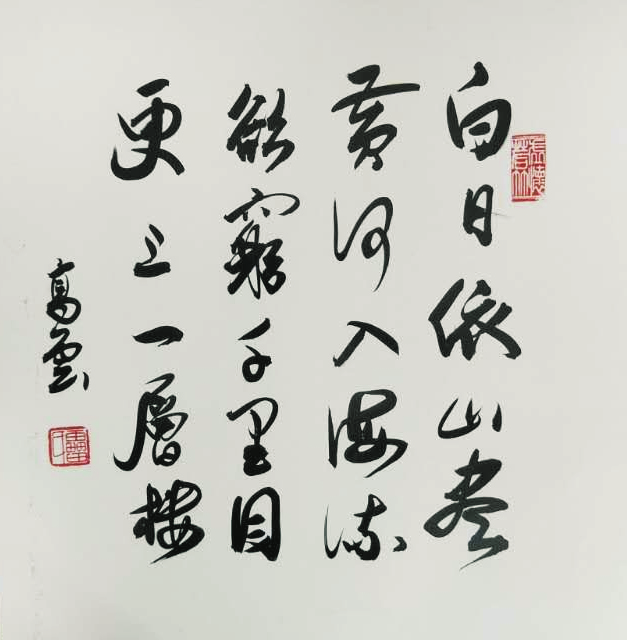 白日依山尽
黄河入海流
欲窮千里目
更上一層楼
高雲